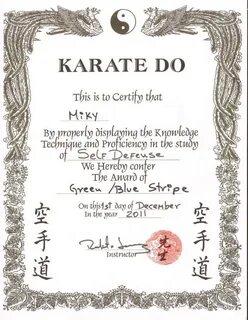 KARATE DO
This is to Certify that
Miky
By properly displaying the Knowledge
Technique and Proficiency in the study
of Self Defense
We Hereby confer
The Award of
Green / Blue Stripe
On this 1st day of December
In the year 2011
空手道
空手道
先生
Instructor